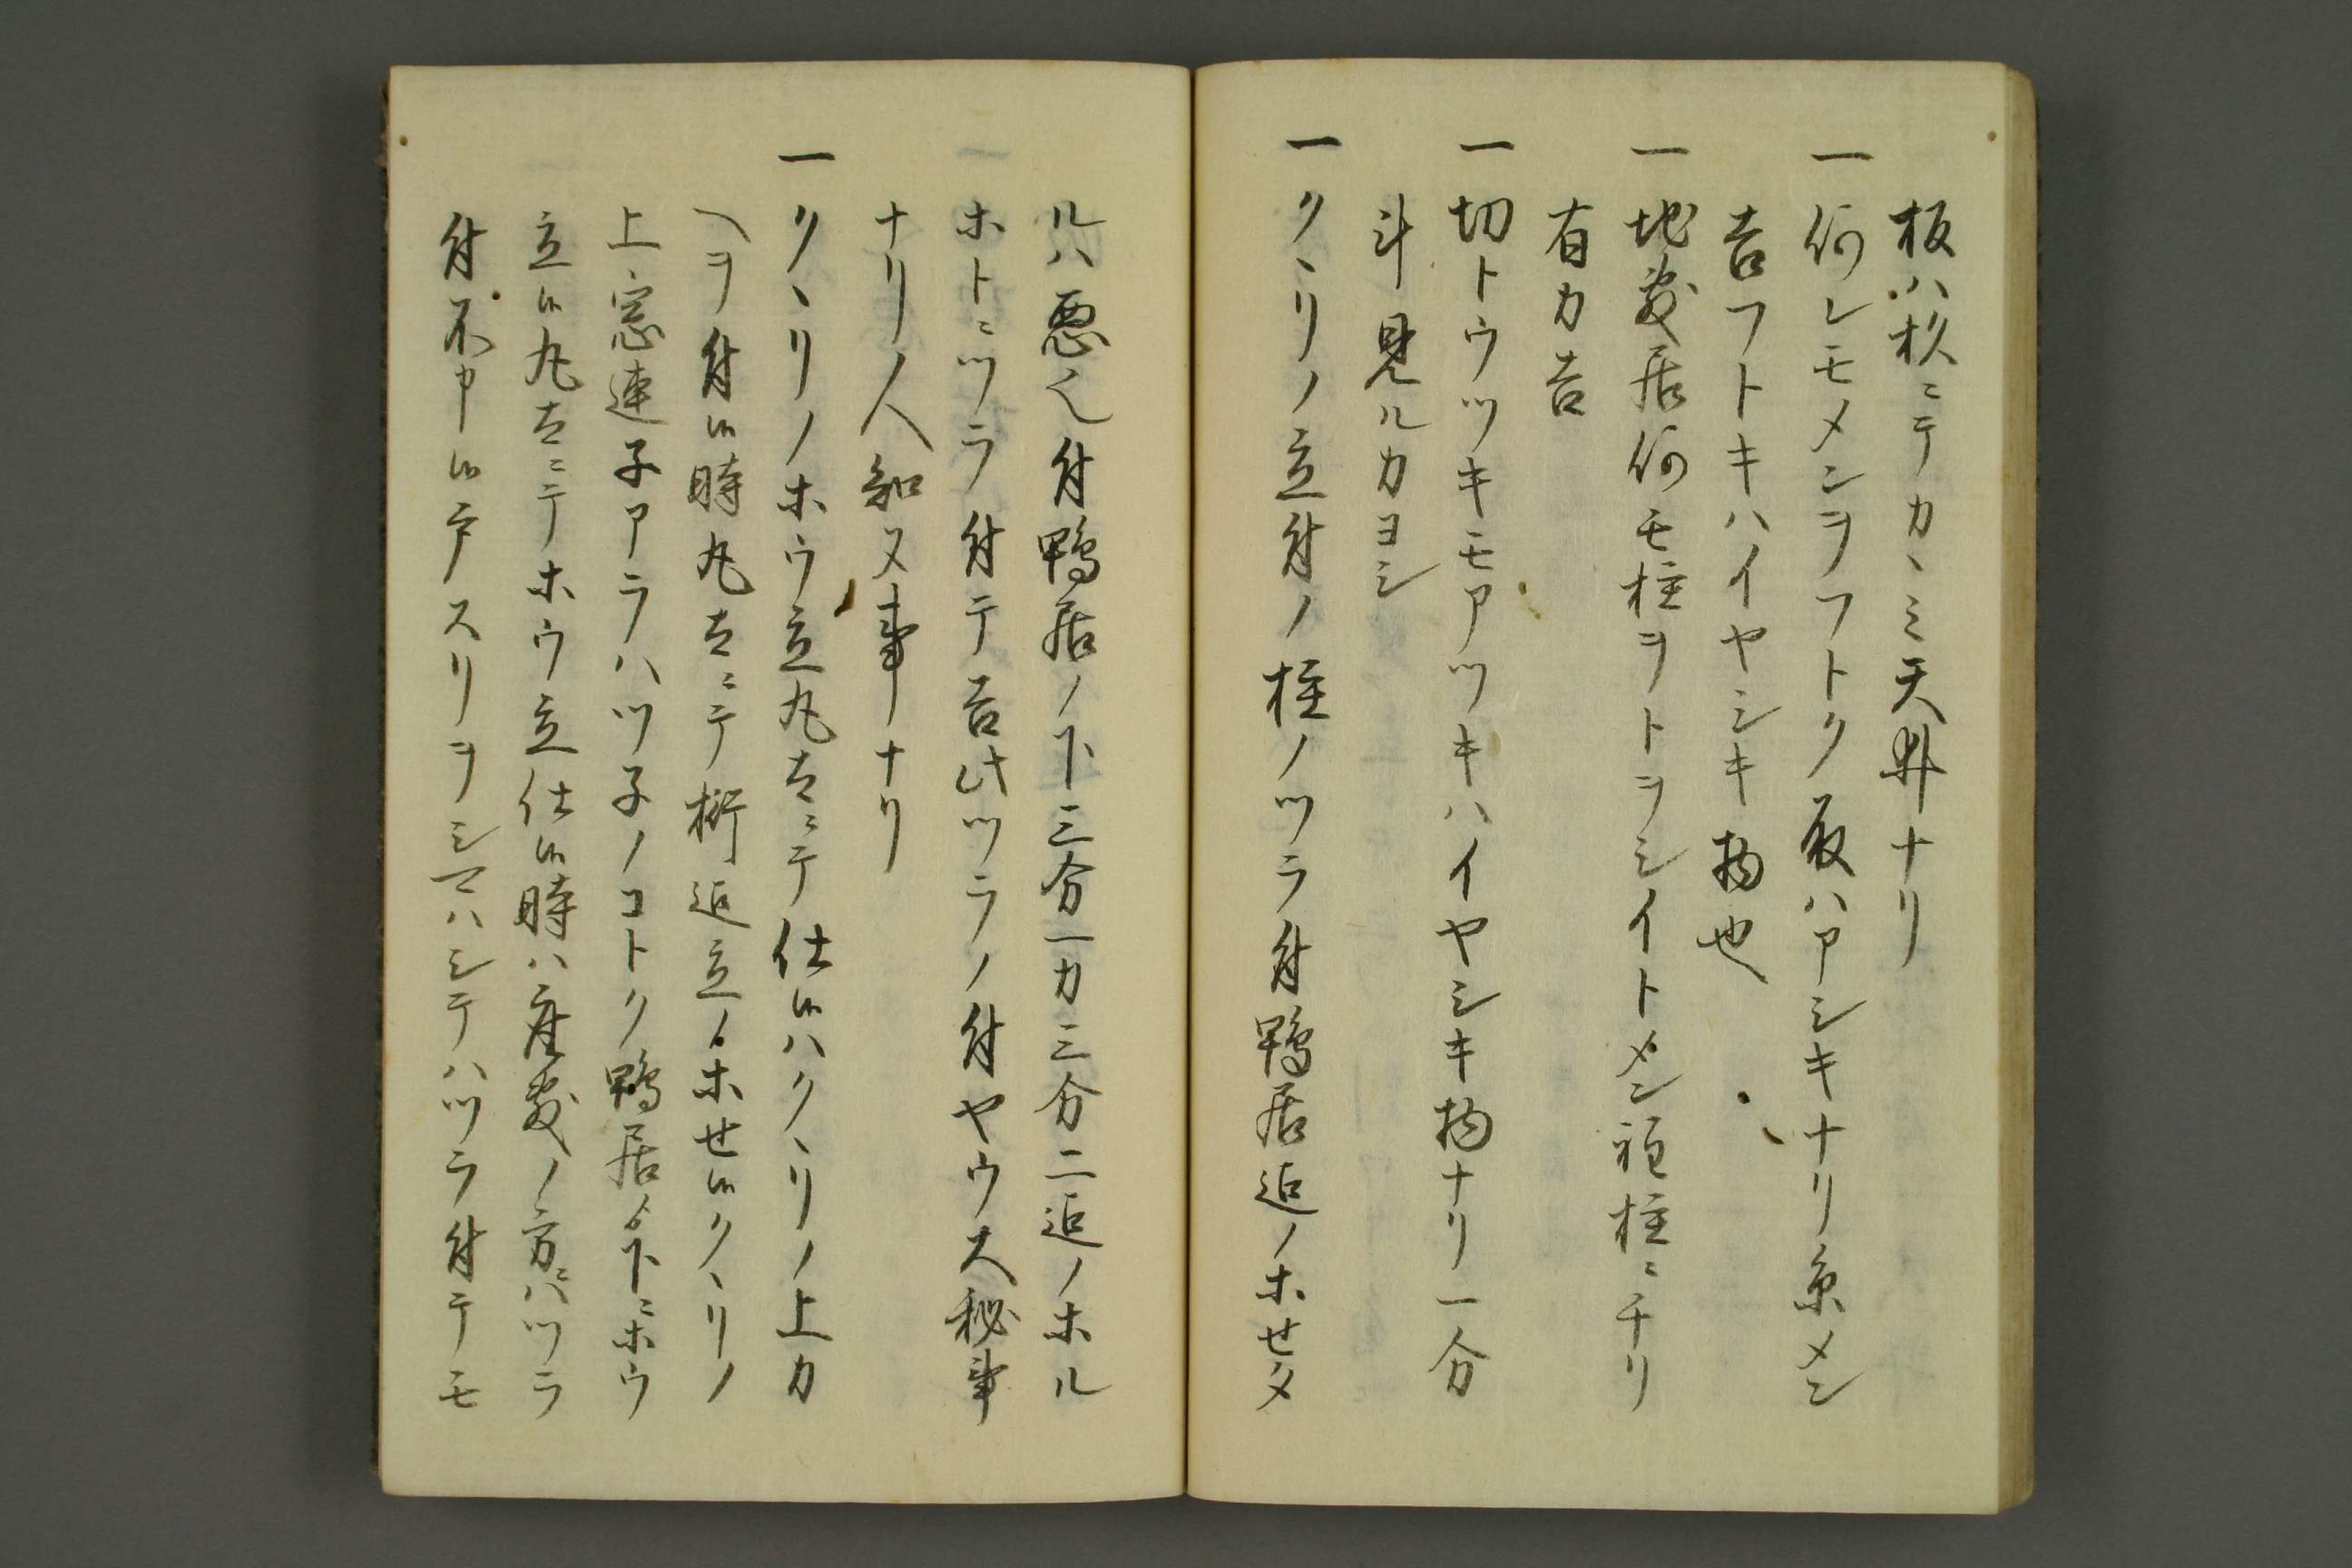 板ハ杉ニテカヽミ天井ナリ
一何レモメンヲフトク取ハアシキナリ糸メン
吉フトキハイヤシキ物也
一地敷居何モ柱ヲトヲシイトメン柱ニチリ
有カ吉
一切トウツキモアツキハイヤシキ物ナリ一分
斗見ルカヨシ
一クヽリノ立付ノ柱ノツラ付鴨居迄ノホセタ
ルハ悪シ付鴨居ノ下三分一カ三分二迄ノホル
ホトニツラ付テ吉此ツラノ付ヤウ大秘事
ナリ人知ヌ事ナリ
一クヽリノホウ立丸太ニテ仕候ハクヽリノ上カ
ヘヲ付候時丸太ニテ桁迄立ノホせ候クヽリノ
上ニ窓連子アラハツ子ノコトク鴨居ノ下ニホウ
立候丸太ニテホウ立仕候時ハ座敷ノ方ニハツラ
付不申候戸スリヲシマハシテハツラ付テモ